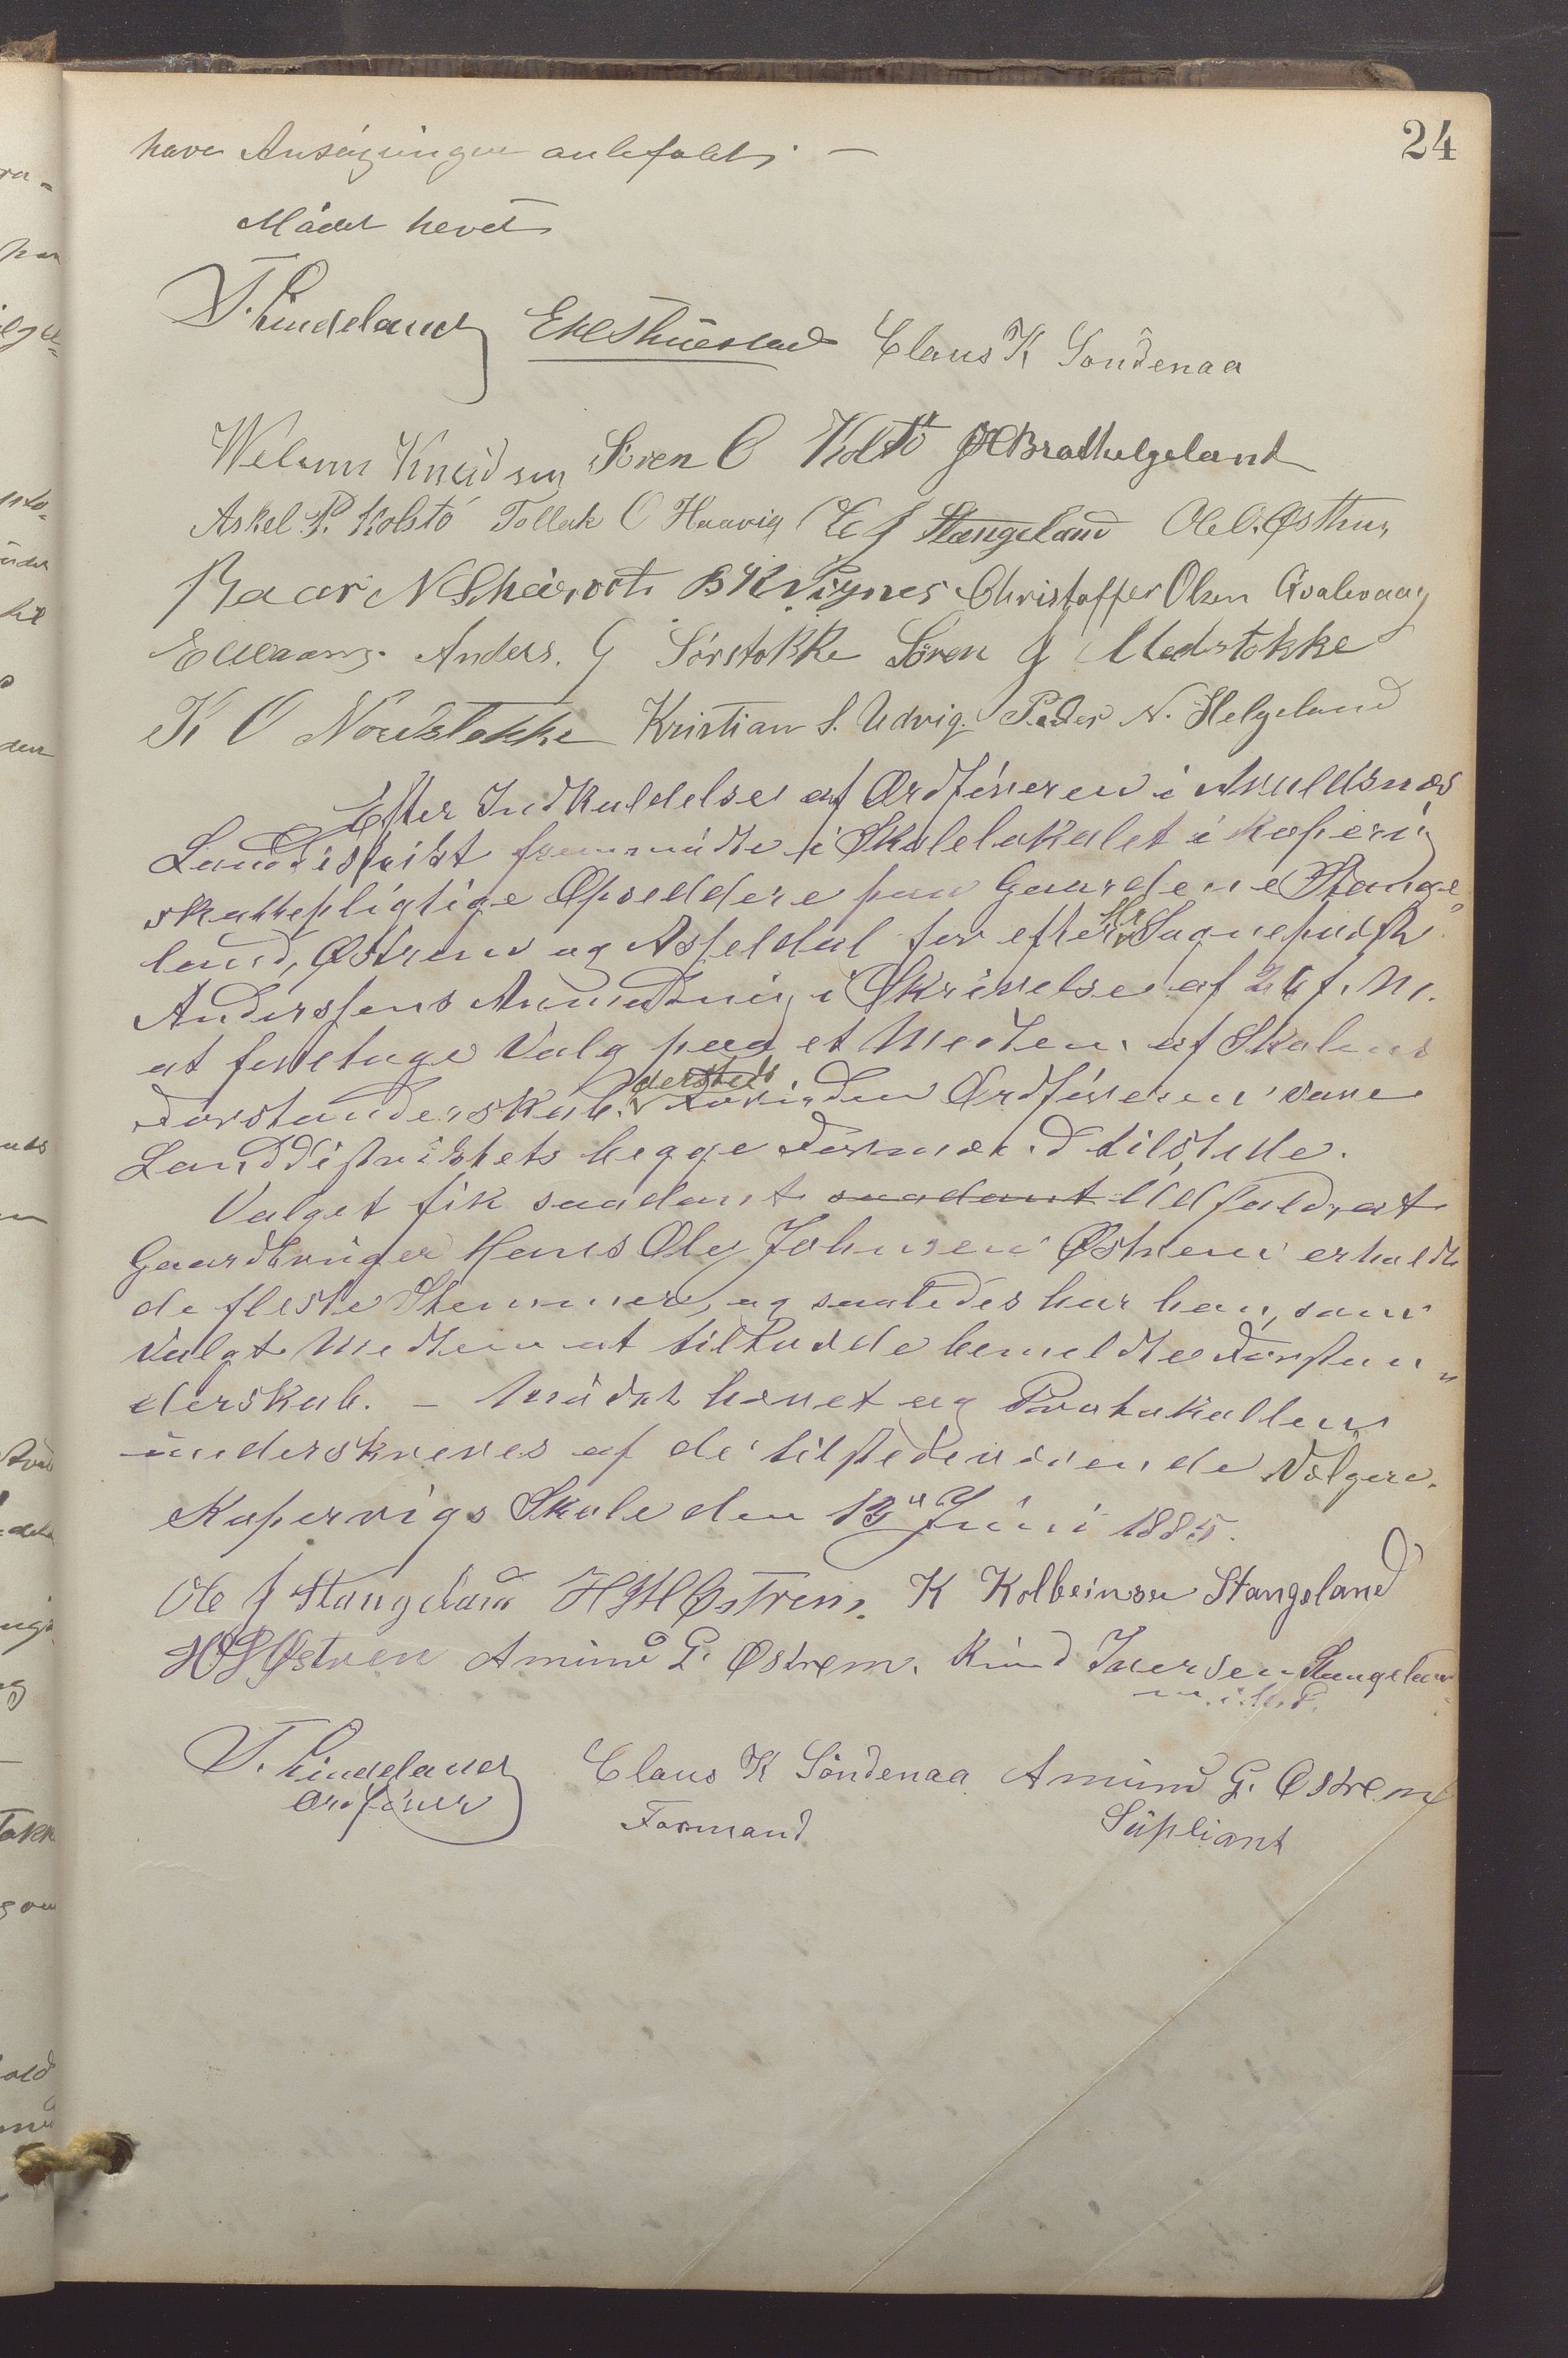 24
have Ansøgningen anbefalet. —
Mødet hevet
T. Lindeland Claus K Søndenaa
Knudsen Søren O Kolstø Brathelgeland
Askel P. Kolstø Tollak O Haavig E J Stangeland Ole O. Østhus
Baar N Christoffer Olsen Qvalevaag
Anders. G Sørstokke Søren J Medstokke
K O Nordstokke Kristian S. Udvig. Peder N. Helgeland
Efter Indkaldelse af Ordføreren i Avaldsnæs
Landdistrikt fremmødte i Skolelokalet i Kopervig
skattepligtige Opsiddere paa Gaardene Stange-
land, Østrem og Aspeldal for efter Hr Sognepræst
Anderssens Anmodning i Skrivelse af 26 f. M.
at foretage Valg paa et Medlem af Skolens
Forstanderskab. dersteds Foruden Ordføreren vare
Landdistriktets begge Formænd tilstede.
Valget fik saadant saadant Udfald, at
Gaardbruger Hans Ole Johnsen Østrem erholdt
de fleste Stemmer, og saaledes har han, som
valgt Medlem at tiltræde bemeldte Forstan-
derskab. — Mødet hævet og Protokollen
underskreves af de tilstedeværende Vælgere.
Kopervigs Skole den 13de Juni 1885.
Ole J Stangeland Østrem. K Kolbeinsen Stangeland
Østrem Amund G. Østrem. Knud Iversen Stangeland
m. i. h. P.
T. Lindeland Claus K Søndenaa Amund G. Østrem
Ordfører Formand Supliant